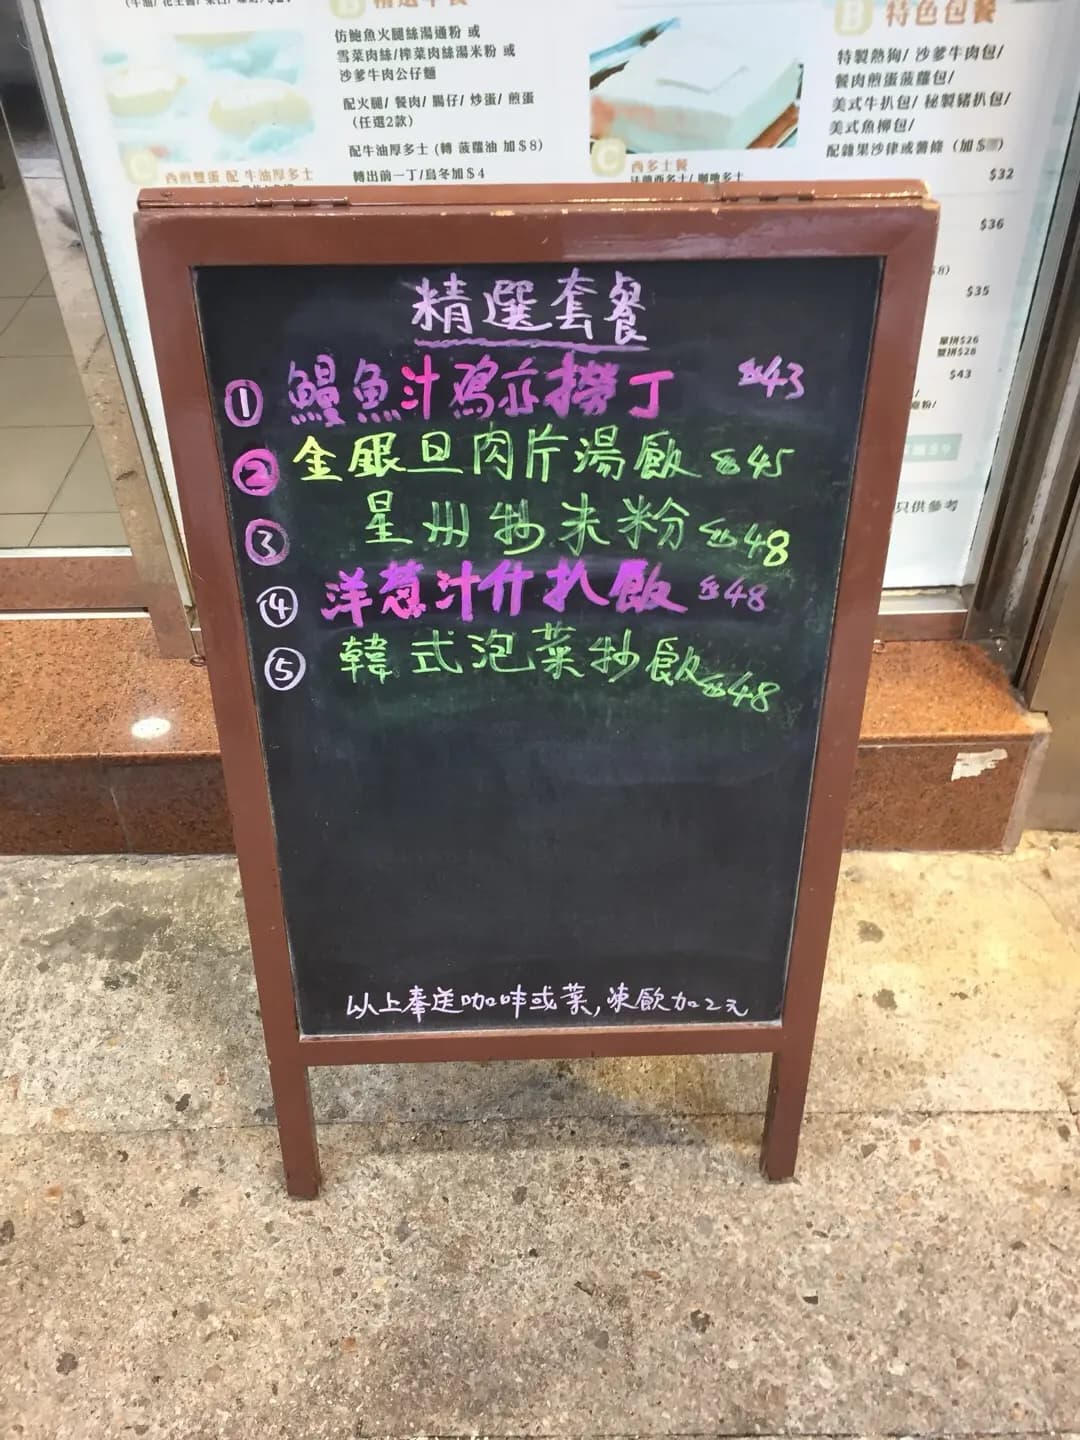 精選早餐
仿鮑魚火腿絲湯通粉 或
雪菜肉絲/榨菜肉絲湯米粉 或
沙爹牛肉公仔麵
配火腿/ 餐肉/ 腸仔/ 炒蛋/ 煎蛋
(任選2款)
配牛油厚多士 (轉 菠蘿油 加$8)
轉出前一丁/烏冬加$4
C
西煎雙蛋 配 牛油厚多士
C
西多士餐
法蘭西多士/ 咖央多士
B
特色包餐
特製熱狗/ 沙爹牛肉包/
餐肉煎蛋菠蘿包/
美式牛扒包/ 秘製豬扒包/
美式魚柳包/
配雜果沙律或薯條
$32
$36
$8)
$35
單拼$26
雙拼$28
$43
只供參考
精選套餐
① 鰻魚汁鸡亦撈丁 $43
② 金銀旦肉片湯飯 $45
③ 星州炒米粉 $48
④ 洋葱汁什扒飯 $48
⑤ 韓式泡菜炒飯 $48
以上奉送咖啡或茶,凍飲加2元